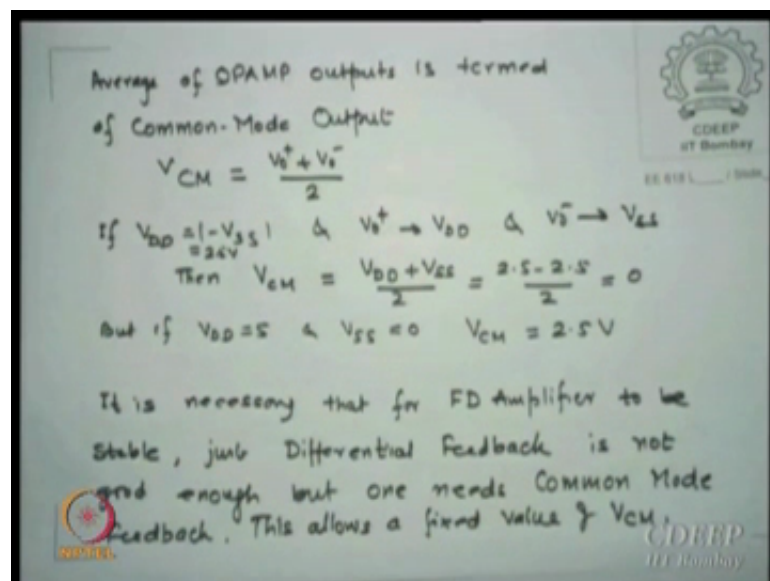 Average of OPAMP outputs is termed
of Common-Mode Output
V_CM = (V₀⁺ + V₀⁻)/2
If V_DD = |-V_SS| & V₀⁺ → V_DD & V₀⁻ → V_SS
= 2.5V
Then V_CM = (V_DD + V_SS)/2 = (2.5 - 2.5)/2 = 0
But if V_DD = 5 & V_SS = 0 V_CM = 2.5 V
It is necessary that for FD Amplifier to be
stable, just Differential Feedback is not
good enough but one needs Common Mode
Feedback. This allows a fixed value of V_CM.
CDEEP
IIT Bombay
EE 618 L____ / Slide__
NPTEL
CDEEP
IIT Bombay